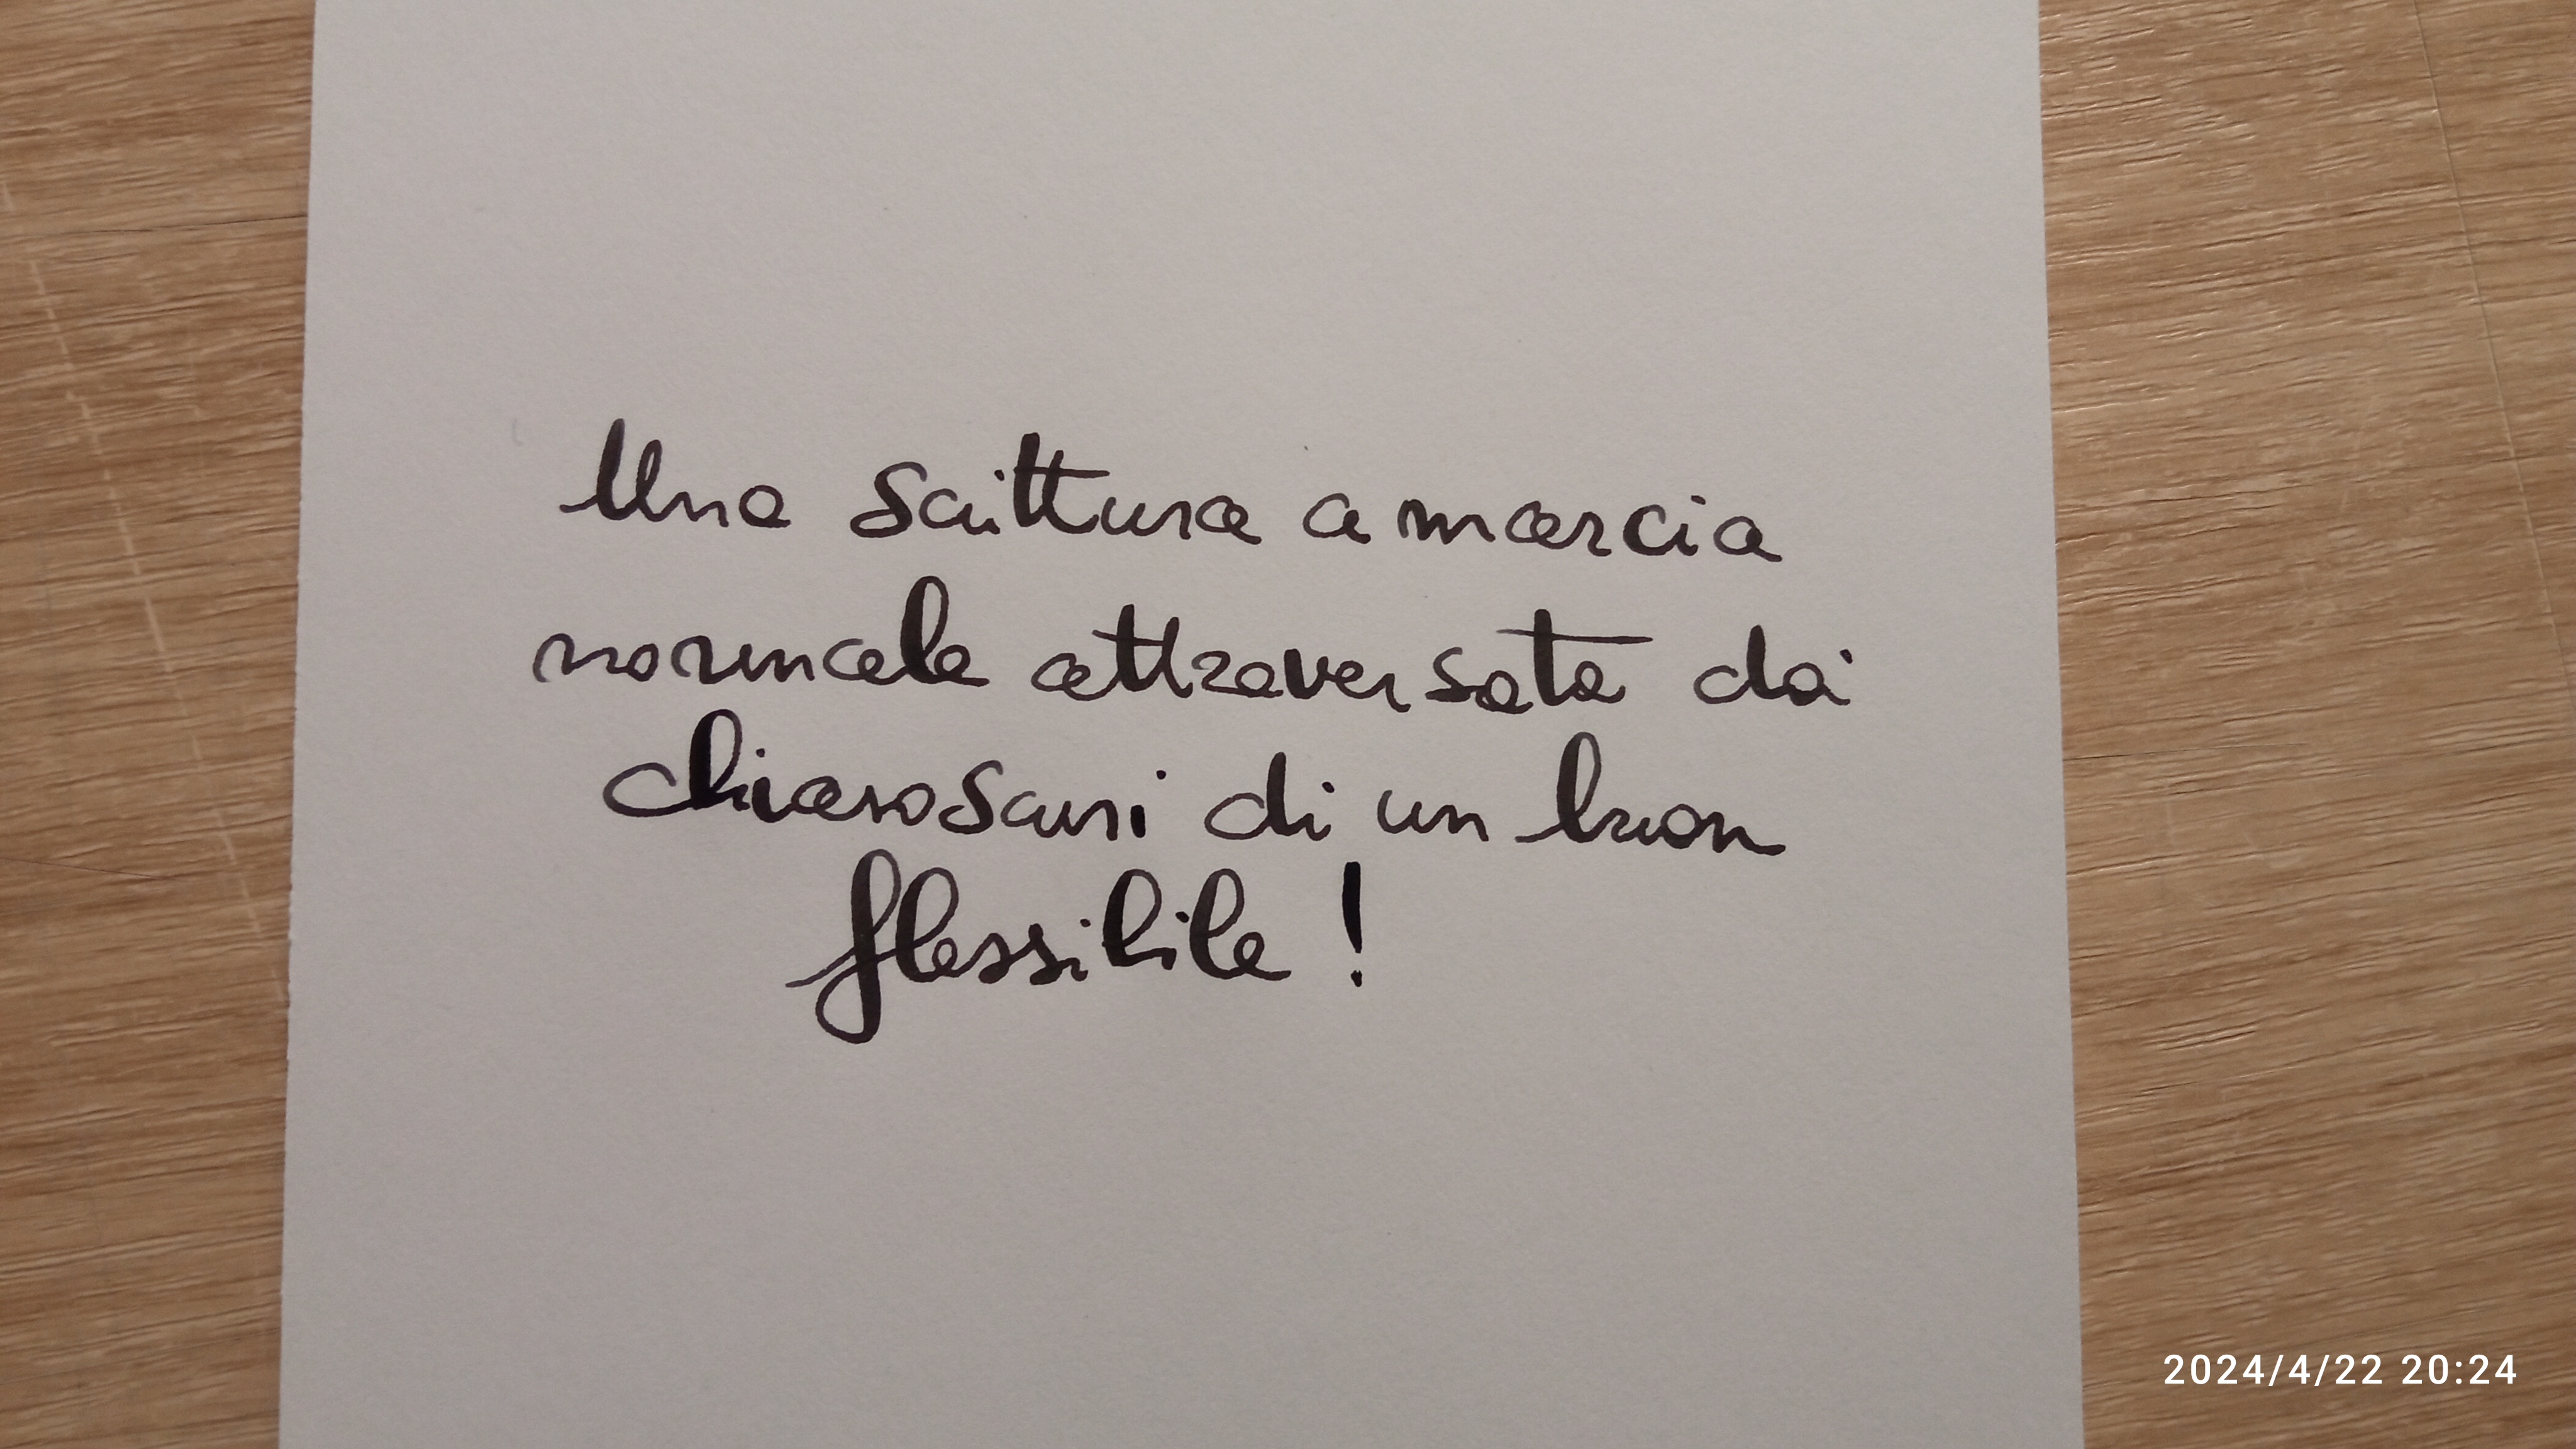 Una scrittura a marcia
normale attraversata dai
chiaroscuri di un buon
flessibile!
2024/4/22 20:24